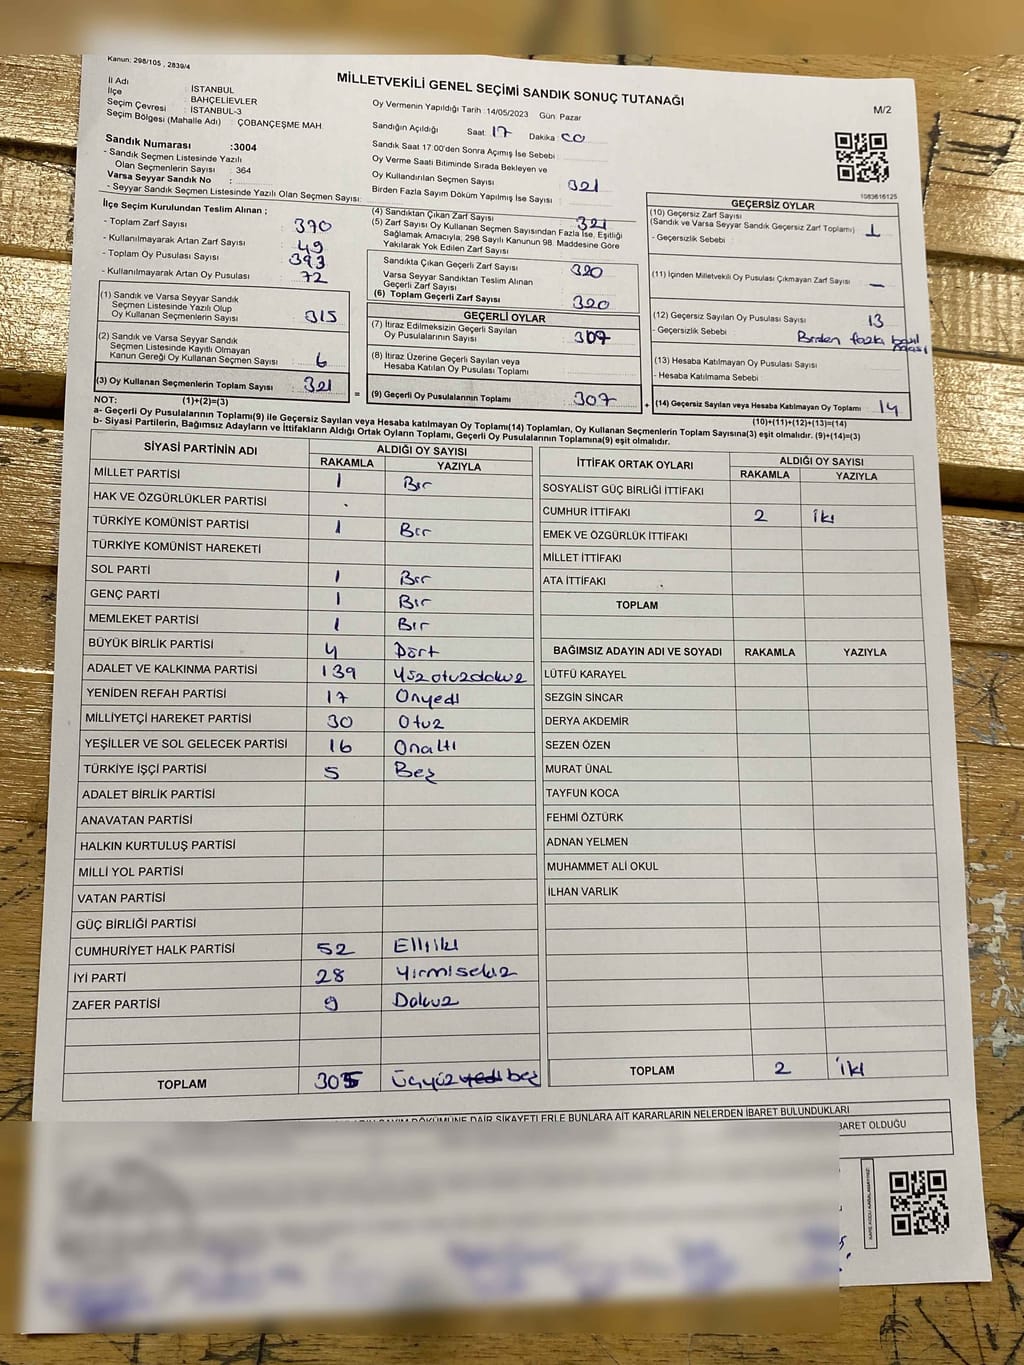 Kanun: 298/105 , 2839/4
MİLLETVEKİLİ GENEL SEÇİMİ SANDIK SONUÇ TUTANAĞI
M/2
İl Adı : İSTANBUL
İlçe : BAHÇELİEVLER
Seçim Çevresi : İSTANBUL-3
Seçim Bölgesi (Mahalle Adı) : ÇOBANÇEŞME MAH.
Sandık Numarası :3004
- Sandık Seçmen Listesinde Yazılı
Olan Seçmenlerin Sayısı : 364
Varsa Seyyar Sandık No :
- Seyyar Sandık Seçmen Listesinde Yazılı Olan Seçmen Sayısı:
Oy Vermenin Yapıldığı Tarih :14/05/2023 Gün: Pazar
Sandığın Açıldığı Saat: 17 Dakika: 00
Sandık Saat 17:00'den Sonra Açımış İse Sebebi :
Oy Verme Saati Bitiminde Sırada Bekleyen ve
Oy Kullandırılan Seçmen Sayısı : 321
Birden Fazla Sayım Döküm Yapılmış İse Sayısı :
İlçe Seçim Kurulundan Teslim Alınan ;
- Toplam Zarf Sayısı : 370
- Kullanılmayarak Artan Zarf Sayısı : 49
- Toplam Oy Pusulası Sayısı : 393
- Kullanılmayarak Artan Oy Pusulası : 72
(1) Sandık ve Varsa Seyyar Sandık
Seçmen Listesinde Yazılı Olup
Oy Kullanan Seçmenlerin Sayısı : 315
(2) Sandık ve Varsa Seyyar Sandık
Seçmen Listesinde Kayıtlı Olmayan
Kanun Gereği Oy Kullanan Seçmen Sayısı : 6
(3) Oy Kullanan Seçmenlerin Toplam Sayısı : 321
(4) Sandıktan Çıkan Zarf Sayısı : 321
(5) Zarf Sayısı Oy Kullanan Seçmen Sayısından Fazla İse, Eşitliği
Sağlamak Amacıyla, 298 Sayılı Kanunun 98. Maddesine Göre
Yakılarak Yok Edilen Zarf Sayısı :
Sandıkta Çıkan Geçerli Zarf Sayısı : 320
Varsa Seyyar Sandıktan Teslim Alınan
Geçerli Zarf Sayısı :
(6) Toplam Geçerli Zarf Sayısı : 320
GEÇERLİ OYLAR
(7) İtiraz Edilmeksizin Geçerli Sayılan
Oy Pusulalarının Sayısı : 307
(8) İtiraz Üzerine Geçerli Sayılan veya
Hesaba Katılan Oy Pusulası Toplamı :
= (9) Geçerli Oy Pusulalarının Toplamı : 307
1083616125
GEÇERSİZ OYLAR
(10) Geçersiz Zarf Sayısı
(Sandık ve Varsa Seyyar Sandık Geçersiz Zarf Toplamı) : 1
- Geçersizlik Sebebi :
(11) İçinden Milletvekili Oy Pusulası Çıkmayan Zarf Sayısı : -
(12) Geçersiz Sayılan Oy Pusulası Sayısı : 13
- Geçersizlik Sebebi : Birden fazla
(13) Hesaba Katılmayan Oy Pusulası Sayısı :
- Hesaba Katılmama Sebebi :
+ (14) Geçersiz Sayılan veya Hesaba Katılmayan Oy Toplamı : 14
NOT: (1)+(2)=(3) (10)+(11)+(12)+(13)=(14)
a- Geçerli Oy Pusulalarının Toplamı(9) ile Geçersiz Sayılan veya Hesaba katılmayan Oy Toplamı(14) Toplamları, Oy Kullanan Seçmenlerin Toplam Sayısına(3) eşit olmalıdır. (9)+(14)=(3)
b- Siyasi Partilerin, Bağımsız Adayların ve İttifakların Aldığı Ortak Oyların Toplamı, Geçerli Oy Pusulalarının Toplamına(9) eşit olmalıdır.
SİYASİ PARTİNİN ADI ALDIĞI OY SAYISI
RAKAMLA YAZIYLA
MİLLET PARTİSİ 1 Bir
HAK VE ÖZGÜRLÜKLER PARTİSİ
TÜRKİYE KOMÜNİST PARTİSİ 1 Bir
TÜRKİYE KOMÜNİST HAREKETİ
SOL PARTİ 1 Bir
GENÇ PARTİ 1 Bir
MEMLEKET PARTİSİ 1 Bir
BÜYÜK BİRLİK PARTİSİ 4 Dört
ADALET VE KALKINMA PARTİSİ 139 Yüzotuzdokuz
YENİDEN REFAH PARTİSİ 17 Onyedi
MİLLİYETÇİ HAREKET PARTİSİ 30 Otuz
YEŞİLLER VE SOL GELECEK PARTİSİ 16 Onaltı
TÜRKİYE İŞÇİ PARTİSİ 5 Beş
ADALET BİRLİK PARTİSİ
ANAVATAN PARTİSİ
HALKIN KURTULUŞ PARTİSİ
MİLLİ YOL PARTİSİ
VATAN PARTİSİ
GÜÇ BİRLİĞİ PARTİSİ
CUMHURİYET HALK PARTİSİ 52 Elliiki
İYİ PARTİ 28 Yirmisekiz
ZAFER PARTİSİ 9 Dokuz
TOPLAM 305 Üçyüz yedi beş
İTTİFAK ORTAK OYLARI ALDIĞI OY SAYISI
RAKAMLA YAZIYLA
SOSYALİST GÜÇ BİRLİĞİ İTTİFAKI
CUMHUR İTTİFAKI 2 İki
EMEK VE ÖZGÜRLÜK İTTİFAKI
MİLLET İTTİFAKI
ATA İTTİFAKI
TOPLAM
BAĞIMSIZ ADAYIN ADI VE SOYADI RAKAMLA YAZIYLA
LÜTFÜ KARAYEL
SEZGİN SİNCAR
DERYA AKDEMİR
SEZEN ÖZEN
MURAT ÜNAL
TAYFUN KOCA
FEHMİ ÖZTÜRK
ADNAN YELMEN
MUHAMMET ALİ OKUL
İLHAN VARLIK
TOPLAM 2 İki
DÖKÜMÜNE DAİR ŞİKAYETLERLE BUNLARA AİT KARARLARIN NELERDEN İBARET BULUNDUKLARI
BARET OLDUĞU